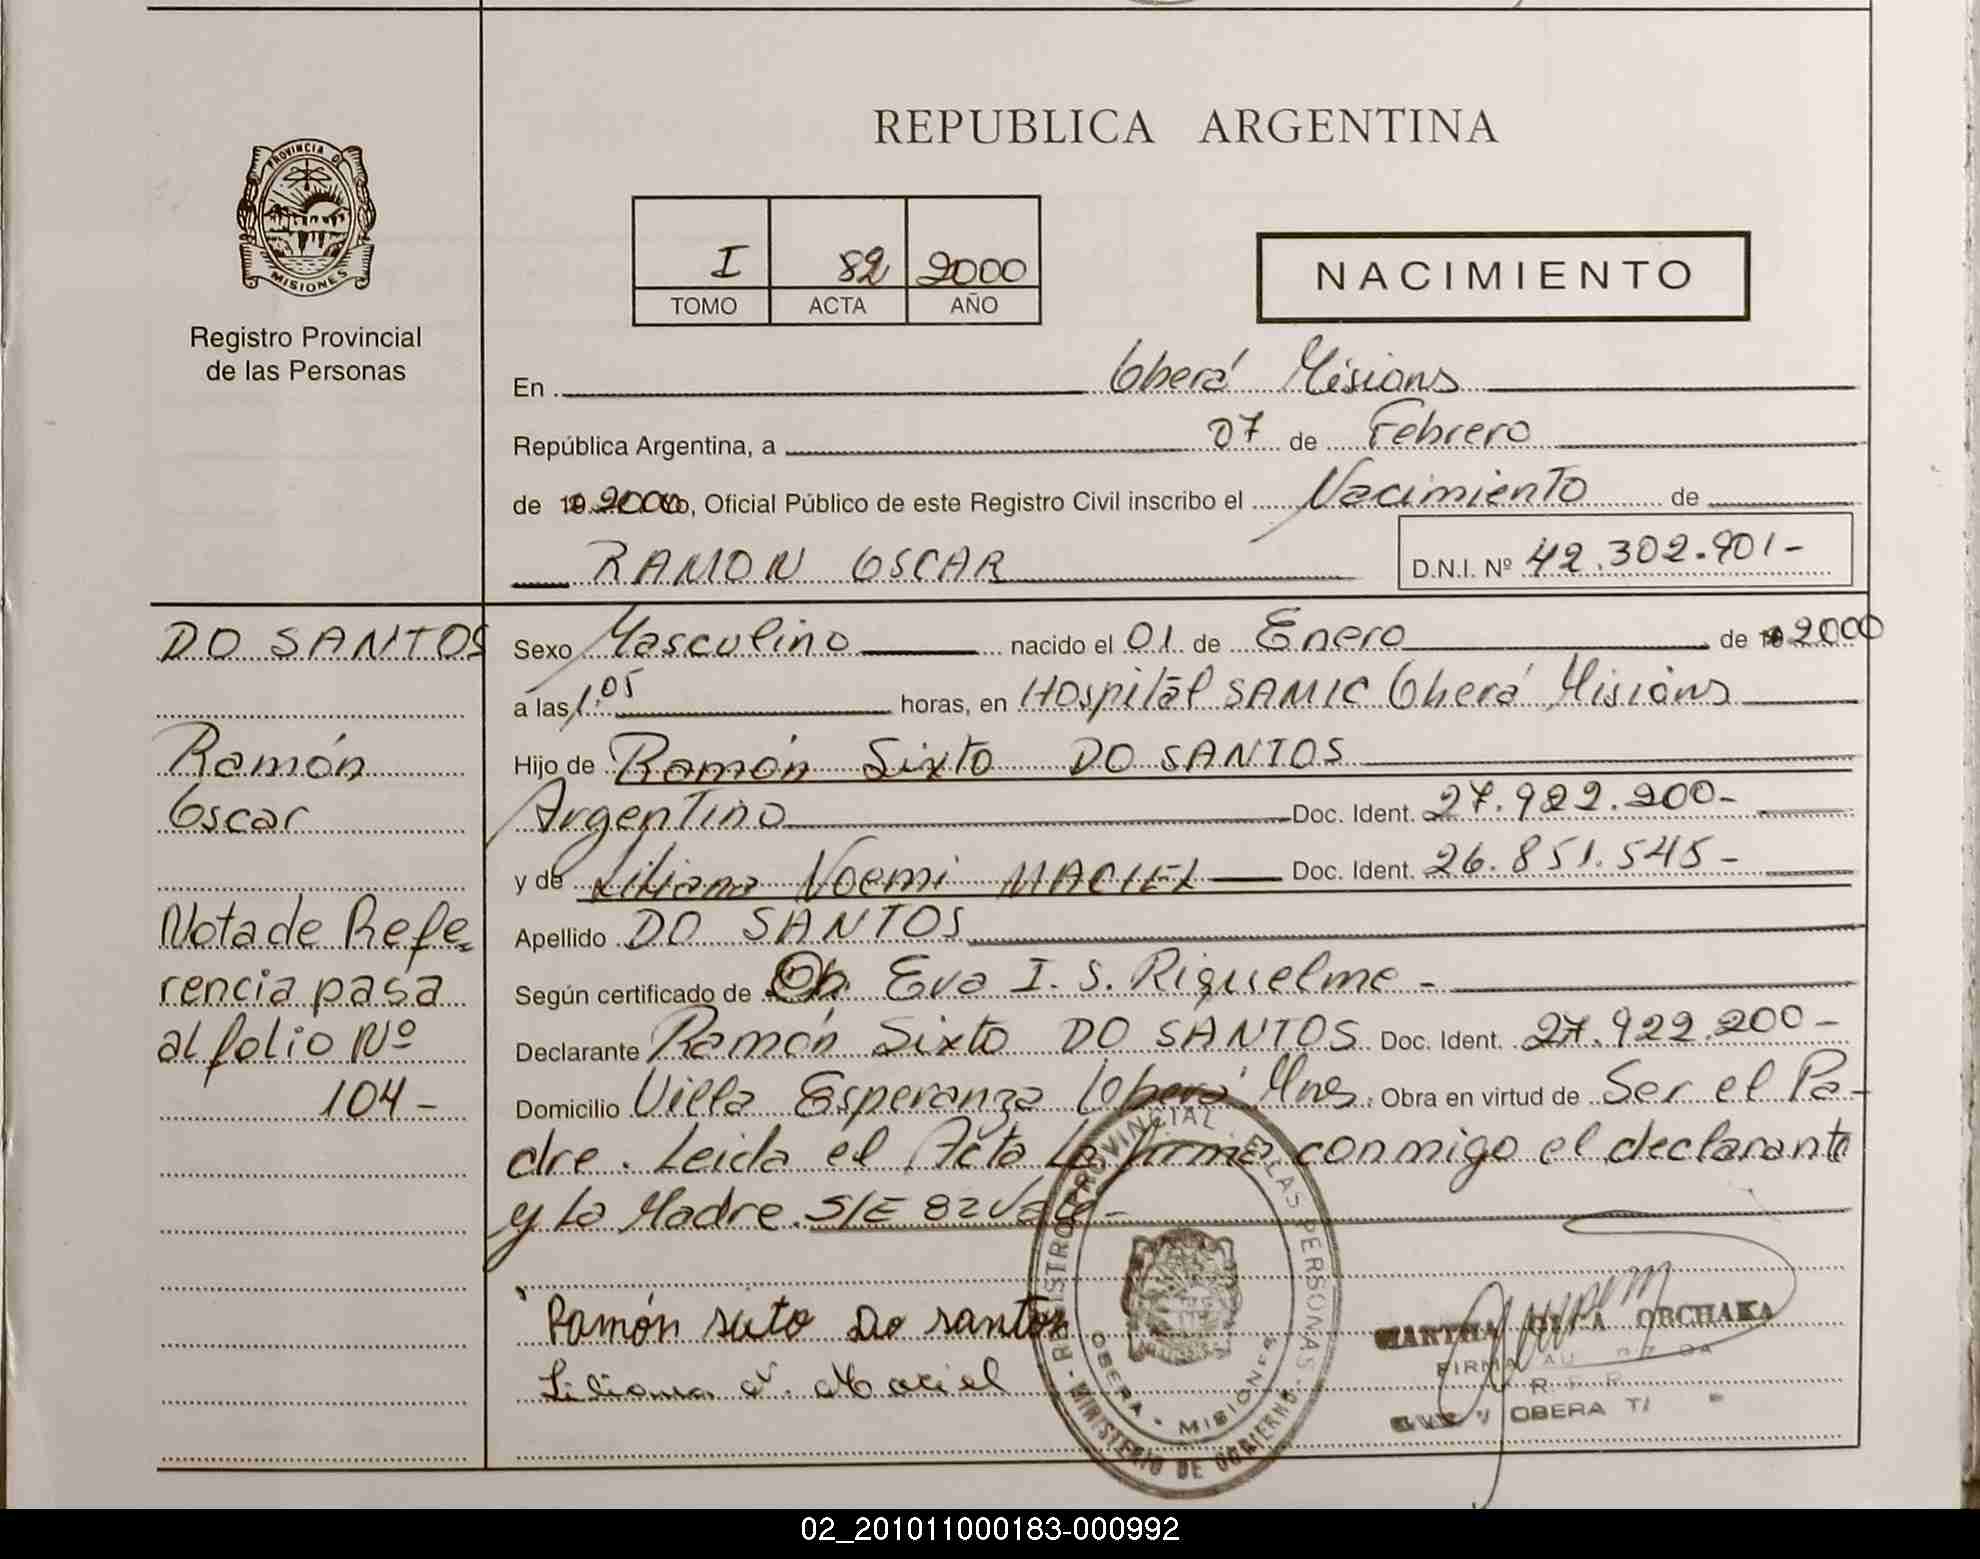 PROVINCIA DE
MISIONES
Registro Provincial
de las Personas
REPUBLICA ARGENTINA
I 82 2000
TOMO ACTA AÑO
NACIMIENTO
En Oberá Misions
República Argentina, a 07 de Febrero
de 19 2000 Yo, Oficial Público de este Registro Civil inscribo el Nacimiento de
RAMON OSCAR D.N.I. Nº 42.302.901-
DO SANTOS
Ramón
Oscar
Nota de Refe-
rencia pasa
al folio Nº
104-
Sexo Masculino nacido el 01 de Enero de 19 2000
a las 1.05 horas, en Hospital SAMIC Oberá Misions
Hijo de Ramón Sixto DO SANTOS
Argentino Doc. Ident. 27.922.200-
y de Liliana Noemi MACIEL Doc. Ident. 26.851.545-
Apellido DO SANTOS
Según certificado de Ob. Eva I. S. Riquelme-
Declarante Ramón Sixto DO SANTOS Doc. Ident. 27.922.200-
Domicilio Villa Esperanza Oberá Mns. Obra en virtud de Ser el Pa-
dre. Leida el Acta La firma conmigo el declarante
y La Madre. S/E 82 Vale-
Ramón sixto Do santos
Liliana N. Maciel
REGISTRO PROVINCIAL DE LAS PERSONAS - MINISTERIO DE GOBIERNO
OBERA - MISIONES
MARTHA OLGA ORCHAKA
FIRMA AUTORIZADA
OBERA
02_201011000183-000992